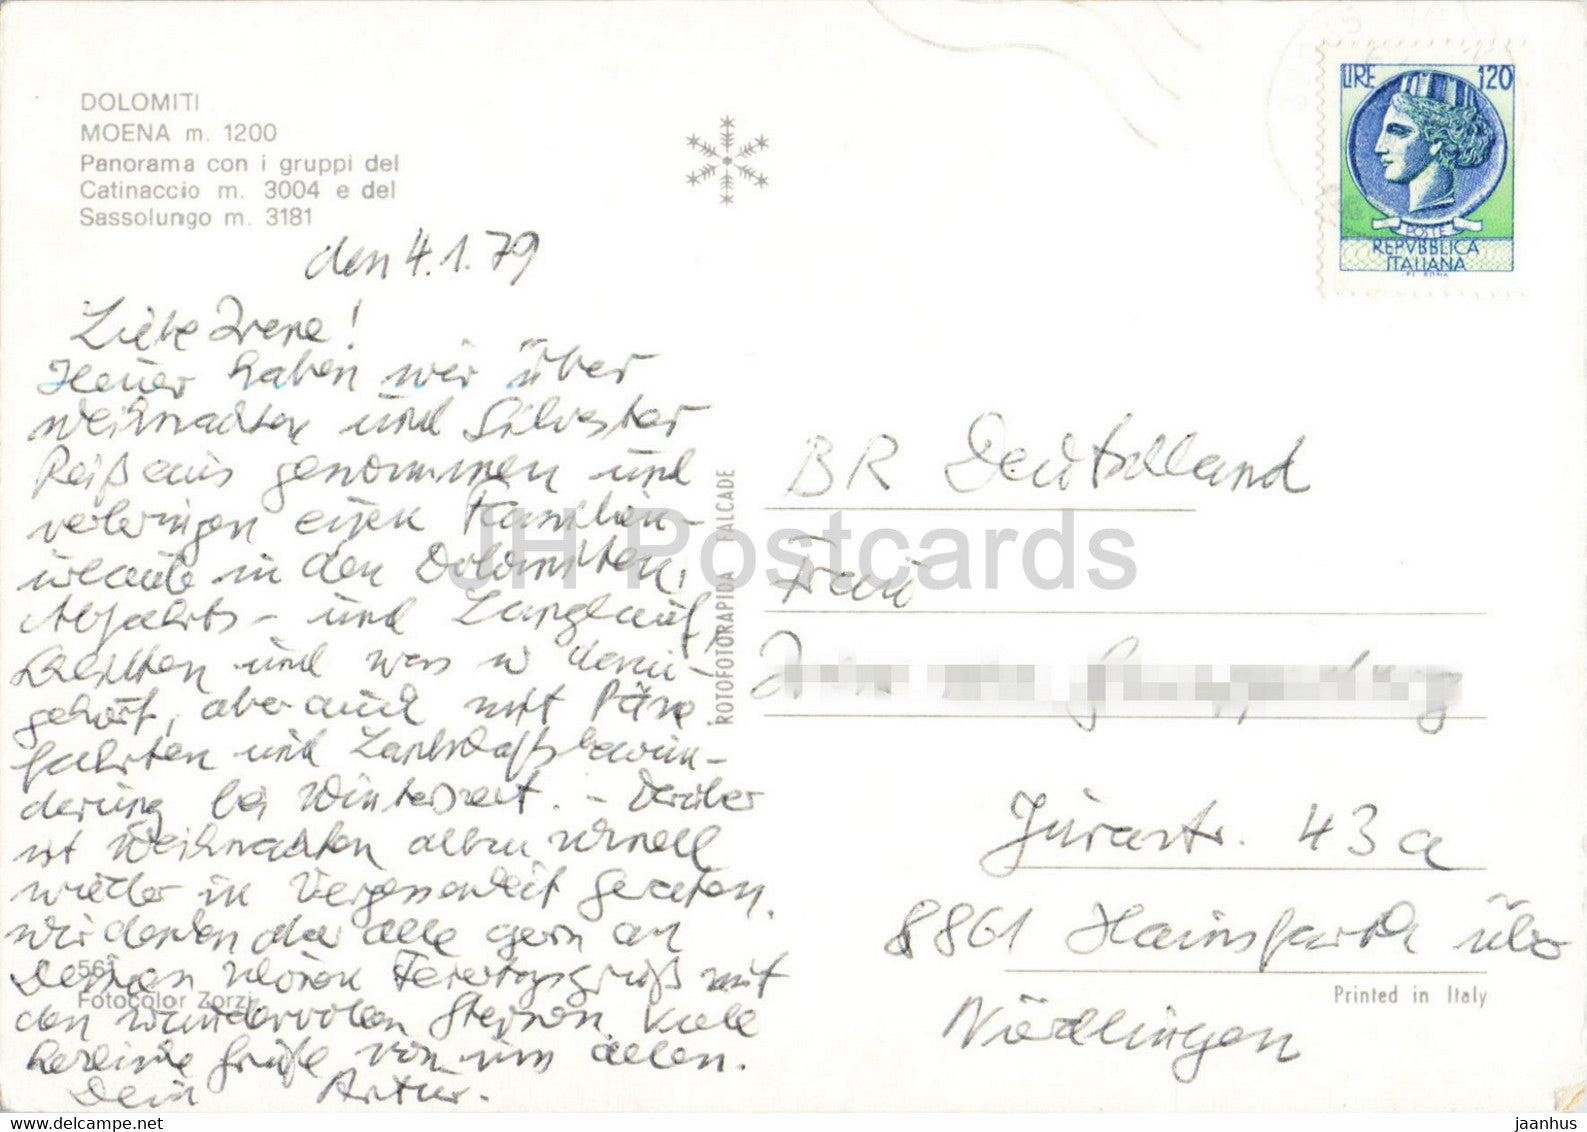 DOLOMITI
MOENA m. 1200
Panorama con i gruppi del
Catinaccio m. 3004 e del
Sassolungo m. 3181
den 4.1.79
Liebe Irene!
Heuer haben wir über
Weihnachten und Silvester
Reißaus genommen und
verbringen einen Familien-
urlaub in den Dolomiten,
Abfahrts- und Langlauf,
und was so dazu-
gehört, aber auch mit
fahrten und Landschaftsbewun-
derung bei Winterszeit. - Darüber
ist Weihnachten allzu schnell
wieder in Vergessenheit geraten.
Wir denken aber alle gern an
Deinen schönen Feiertagsgruß mit
den wundervollen Sternen. Viele
herzliche Grüße von uns allen.
Dein Artur.
567
Fotocolor Zorzi
ROTOFOTORAPIDA FALCADE
LIRE 120
POSTE
REPVBBLICA
ITALIANA
I.P.S. ROMA
BR Deutschland
Frau
Jurastr. 43a
8861 Hainsfarth über
Nördlingen
Printed in Italy
JH Postcards
www.delcampe.net
jaanhus